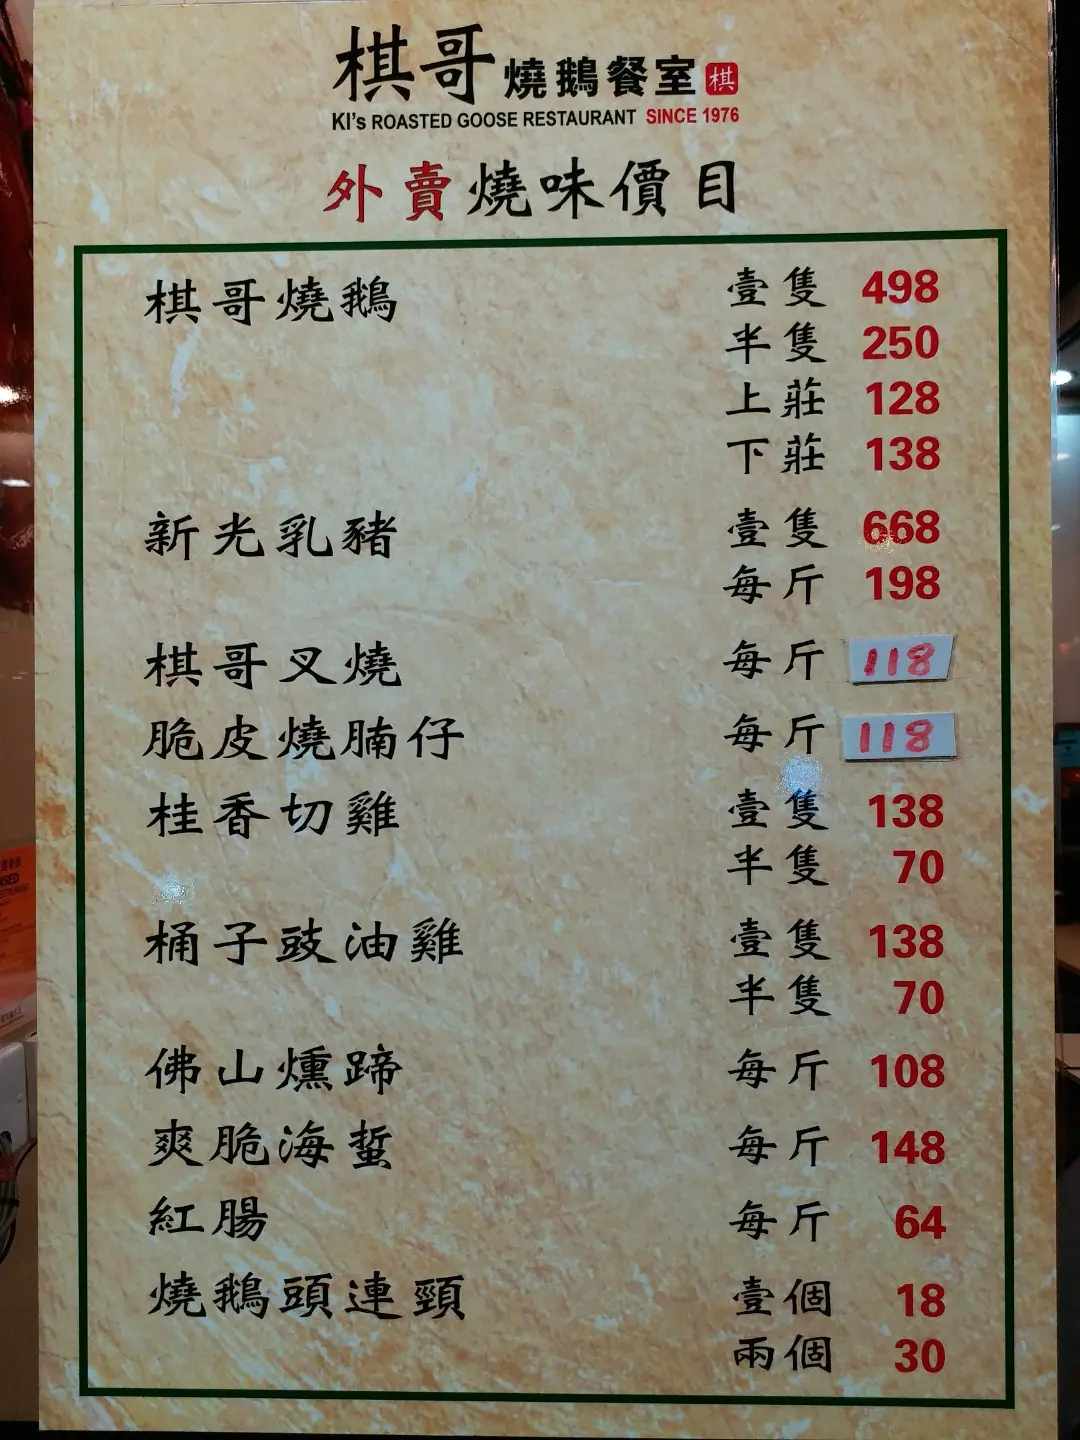 棋哥燒鵝餐室 棋
KI's ROASTED GOOSE RESTAURANT SINCE 1976
外賣燒味價目
棋哥燒鵝 壹隻 498
半隻 250
上莊 128
下莊 138
新光乳豬 壹隻 668
每斤 198
棋哥叉燒 每斤 118
脆皮燒腩仔 每斤 118
桂香切雞 壹隻 138
半隻 70
桶子豉油雞 壹隻 138
半隻 70
佛山燻蹄 每斤 108
爽脆海蜇 每斤 148
紅腸 每斤 64
燒鵝頭連頸 壹個 18
兩個 30